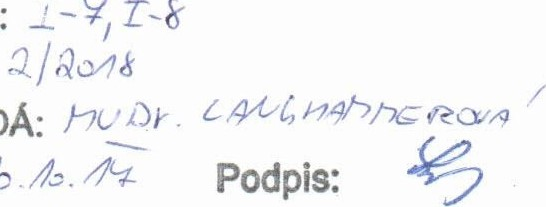 : I-7, I-8
2/2018
DÁ: MUDr. LANGHAMMEROVÁ
6.10.17 Podpis: